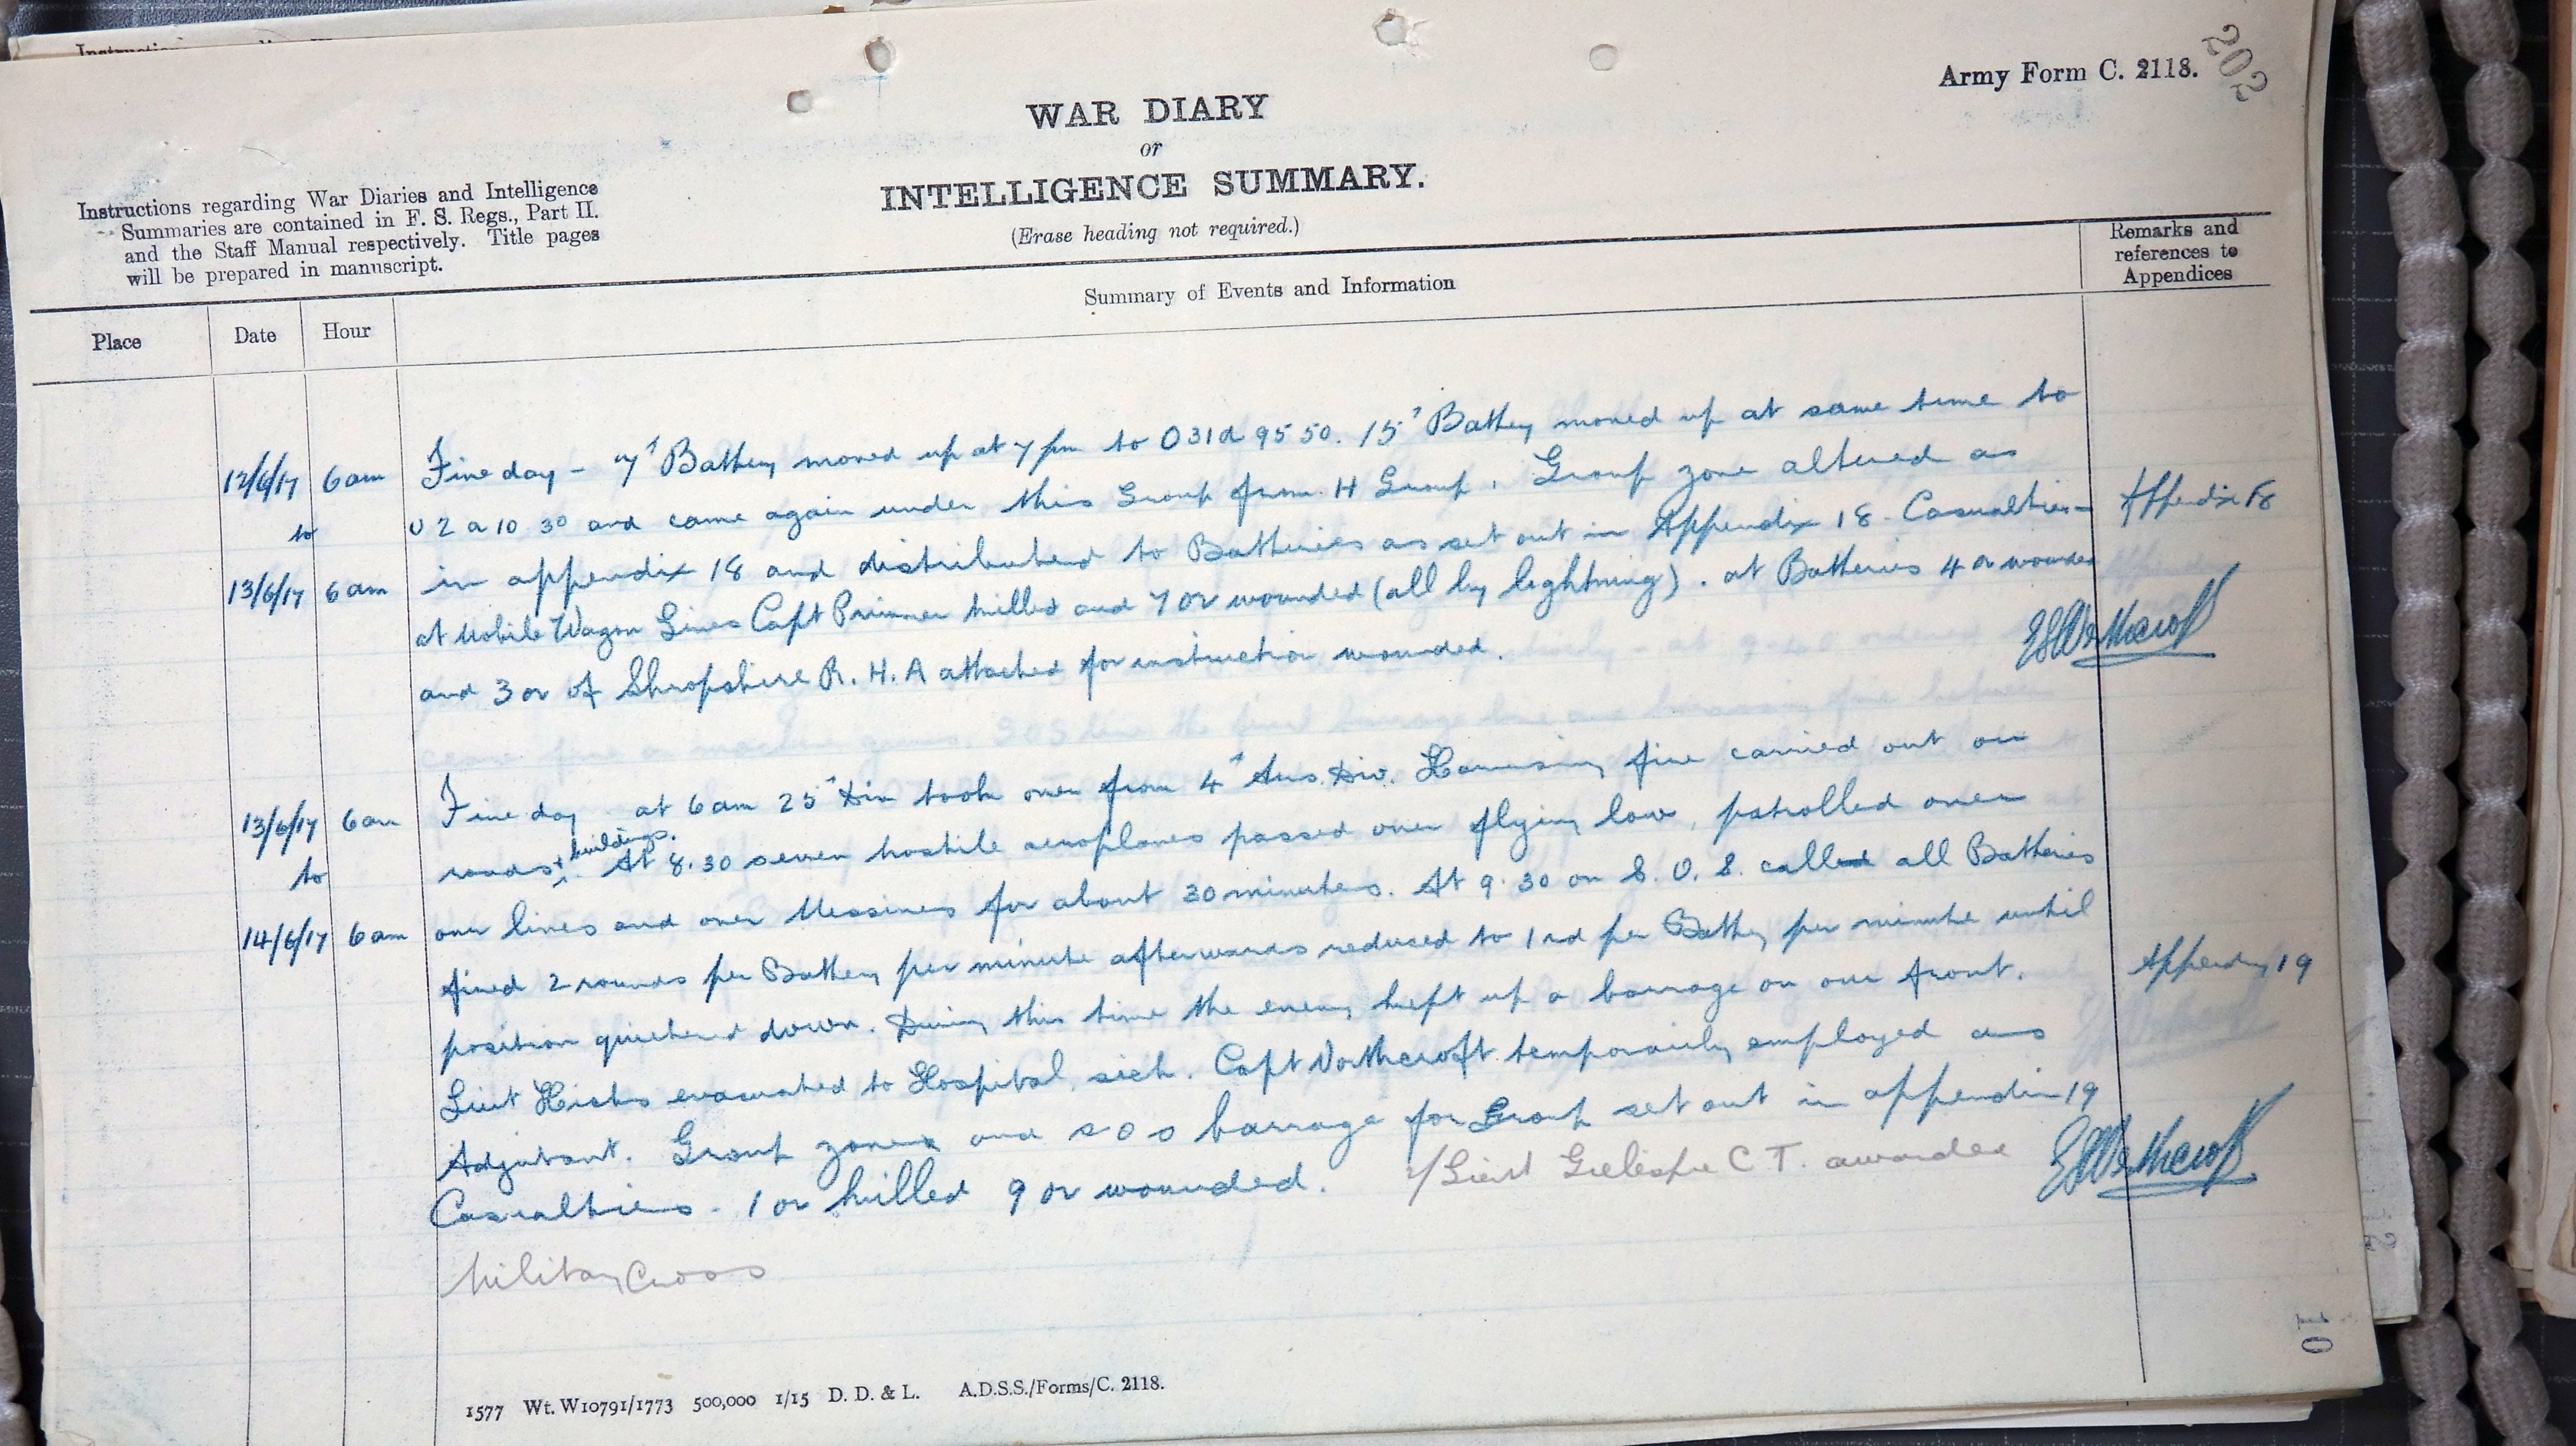 Army Form C. 2118.
202
WAR DIARY
or
INTELLIGENCE SUMMARY.
(Erase heading not required.)
Instructions regarding War Diaries and Intelligence
Summaries are contained in F. S. Regs., Part II.
and the Staff Manual respectively. Title pages
will be prepared in manuscript.
Place
Date
Hour
Summary of Events and Information
Remarks and
references to
Appendices
12/6/17 6 am Fine day - 7" Battery moved up at 7 pm to O31d 95 50. 15" Battery moved up at same time to
to U 2 a 10 30 and came again under this Group from H Group. Group zone altered as
13/6/17 6 am in appendix 18 and distributed to Batteries as set out in Appendix 18. Casualties - Appendix 18
at Mobile Wagon Lines Capt killed and 7 or wounded (all by lightning). at Batteries 4 or wounded
and 3 or of Shropshire R.H.A attached for instruction wounded.
13/6/17 6 am Fine day at 6 am 25" Div took over from 4" Aus. Div. Harrassing fire carried out on
to roads + buildings. At 8.30 seven hostile aeroplanes passed over flying low, patrolled over
14/6/17 6 am our lines and over Messines for about 30 minutes. At 9.30 on S.O.S. call all Batteries
fired 2 rounds per Battery per minute afterwards reduced to 1 rd per Battery per minute until
position quietened down. During this time the enemy kept up a barrage on our front. Appendix 19
Lieut Hicks evacuated to Hospital, sick. Capt Northcroft temporarily employed as
Adjutant. Group zones and s o s barrage for Group set out in appendix 19
Casualties - 1 or killed 9 or wounded. 2/Lieut Gillespie C T. awarded
Military Cross
10
1577 Wt. W10791/1773 500,000 1/15 D. D. & L. A.D.S.S./Forms/C. 2118.